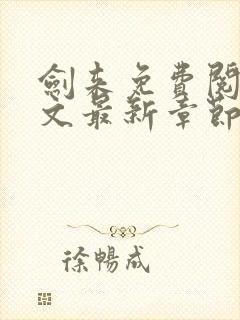 劍來免費閱
文最新章節
徐暢成